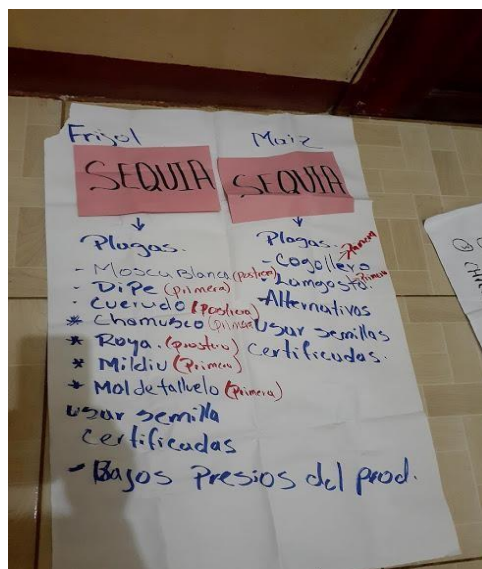 Frijol
SEQUIA
Plagas.
- Mosca Blanca (postrera)
- Dipe (primera)
- Cuerudo (postrera)
* Chamusco (primera
* Roya. (prostera)
* Mildiu (Primera)
* Mal de talluelo (Primera)
usar semilla
certificadas
- Bajos Presios del prod.
Maiz
SEQUIA
Plagas. Primera
- Cogollero
- Langosta. Primera
- Alternativas
Usar semillas
certificadas.